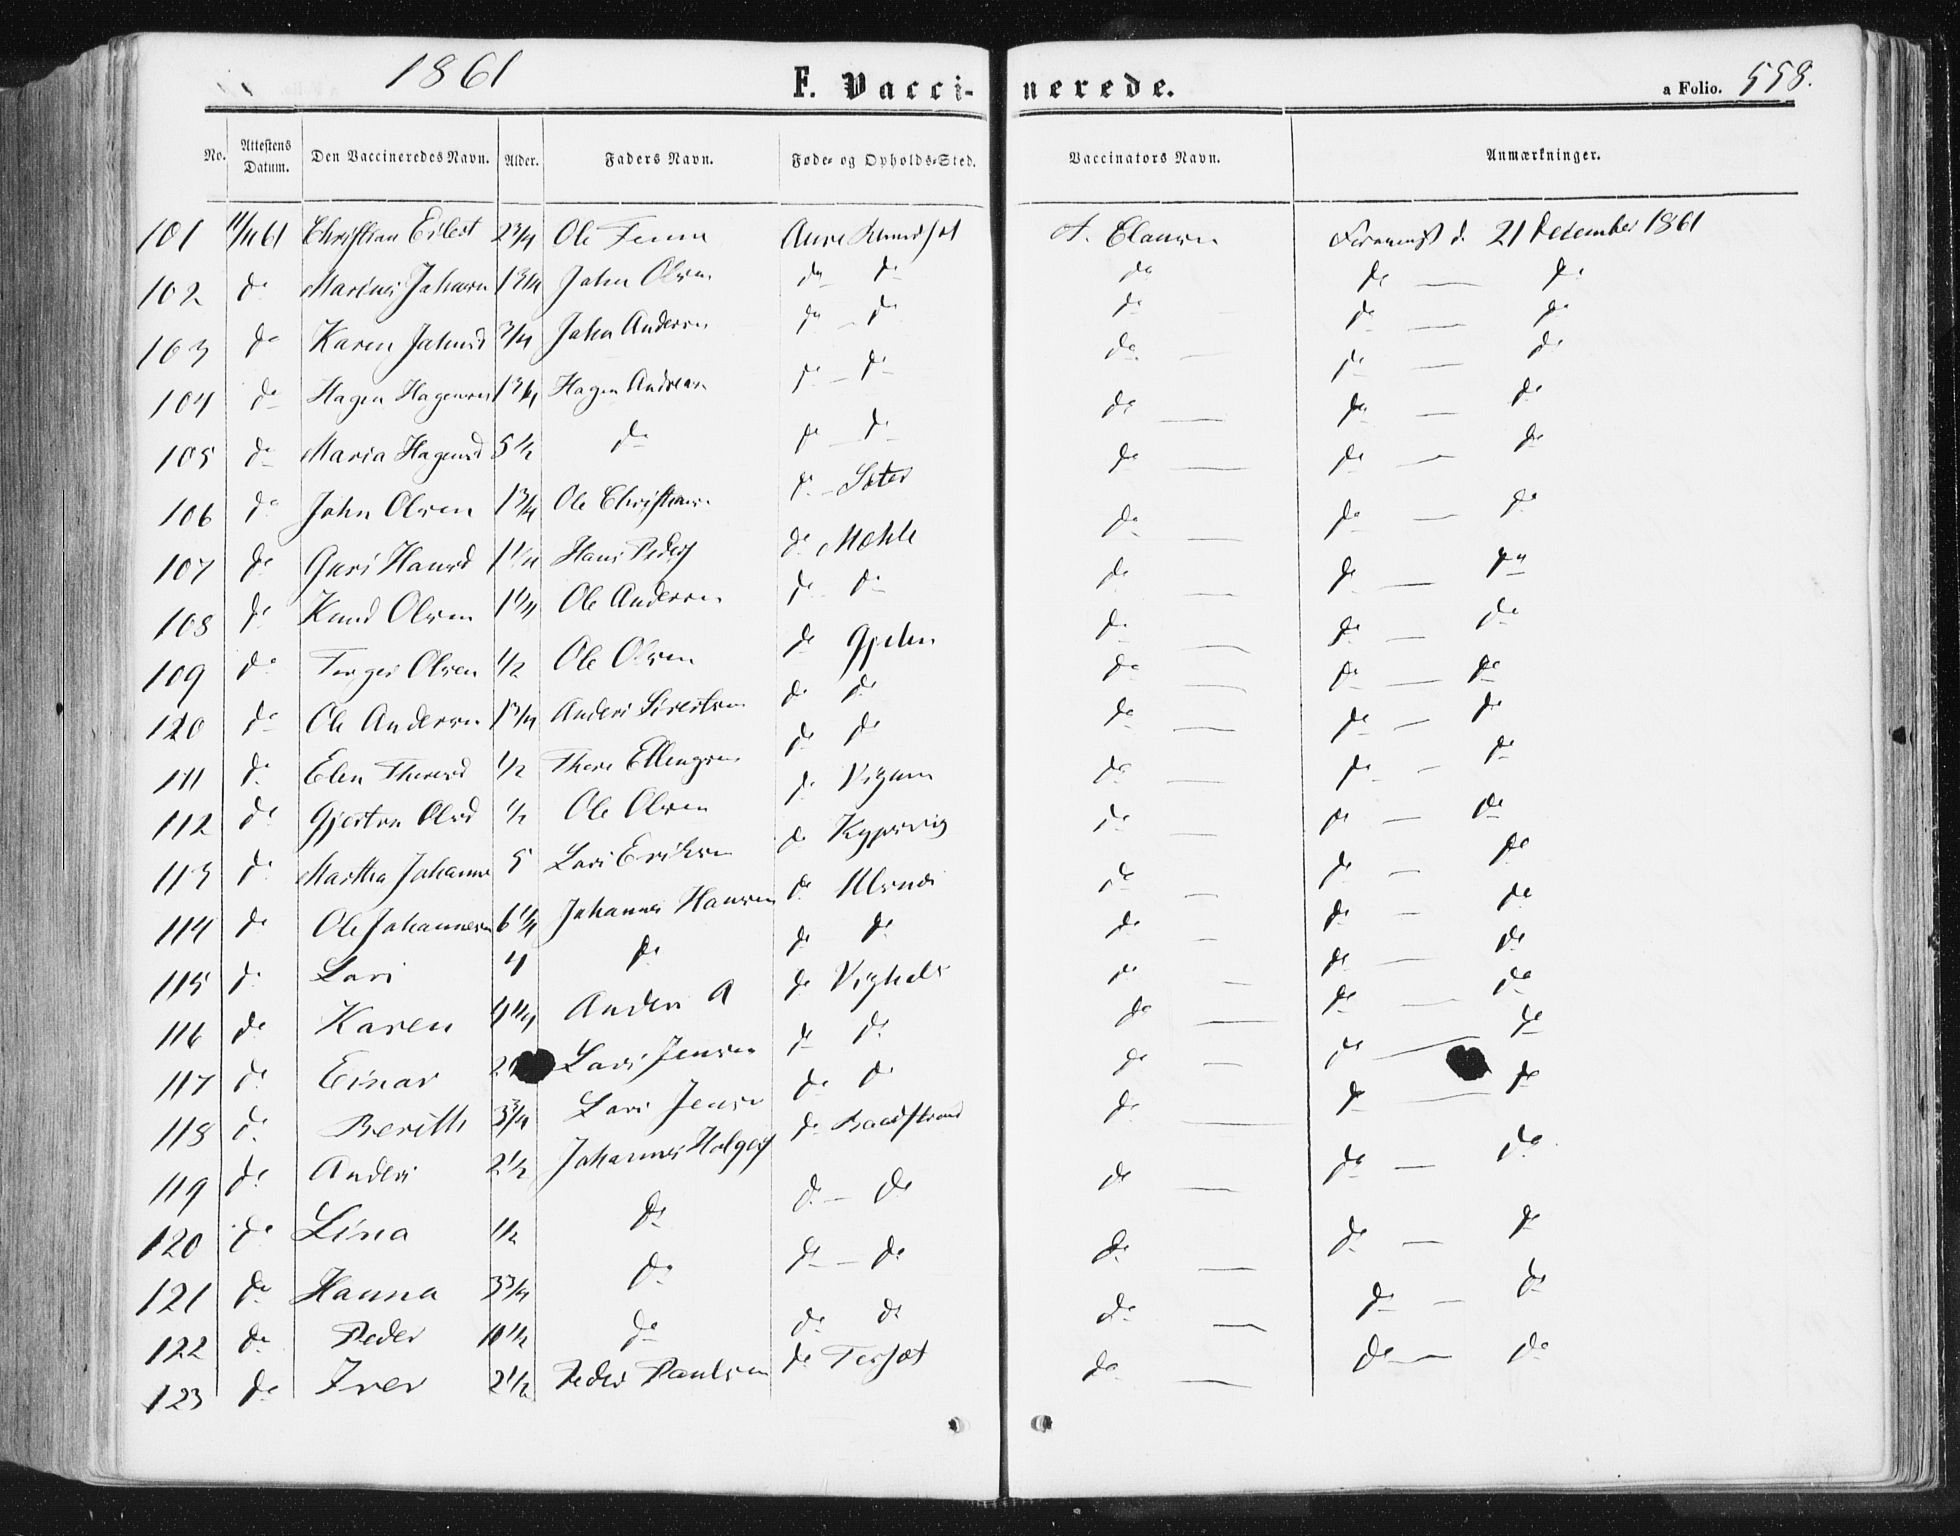 1861 F. Vaccinerede. a Folio. 558.
No. Attestens Datum. Den Vaccineredes Navn. Alder. Faders Navn. Føde- og Opholds-Sted. Vaccinators Navn. Anmærkninger.
101 11/11 61 Christian 2 3/4 Ole Aure A. Clausen d. 21 December 1861
102 do Marius Johnsen 1 3/4 John Olsen do do do do — do
103 do Karen Johnsd 3/4 John Andersen do - do do — do — do
104 do Hagen Hagensen 1 3/4 Hagen Andersen do - do do — do — do
105 do Maria Hagensd 5 1/2 do do - do do — do — do
106 do John Olsen 1 3/4 Ole Christians. do - Sæter do — do — do
107 do Guri Hansd 1 1/4 Hans Peders do Mæhle do — do — do
108 do Knud Olsen 1 1/4 Ole Andersen do do do — do — do
109 do Torger Olsen 1/2 Ole Olsen do Gjelen do — do — do
120 do Ole Andersen 1 3/4 Anders Sivertsen do do do — do — do
111 do Elen Theresd 1/2 There Ellingsen do do do — do — do
112 do Gjertru Olsd 1/2 Ole Olsen do do — do — do
113 do Martha Johanne 5 Lars Eriksen do do — do — do
114 do Ole Johannesen 6 1/4 Johannes Hansen do do — do — do
115 do Lars 4 do do do do — do — do
116 do Karen 4 1/4 Anders A do do — do — do
117 do Einar 2 Lars Jensen do do do — do — do
118 do Berith 3 3/4 Lars Jensen do do do — do — do
119 do Anders 2 1/2 Johannes Holgers do do — do — do
120 do Lina 1/2 do do — do do — do — do
121 do Hanna 3 3/4 do do — do do — do — do
122 do Peder 10 1/2 do do do do — do — do
123 do Iver 2 1/2 Peder Paulsen do do — do — do